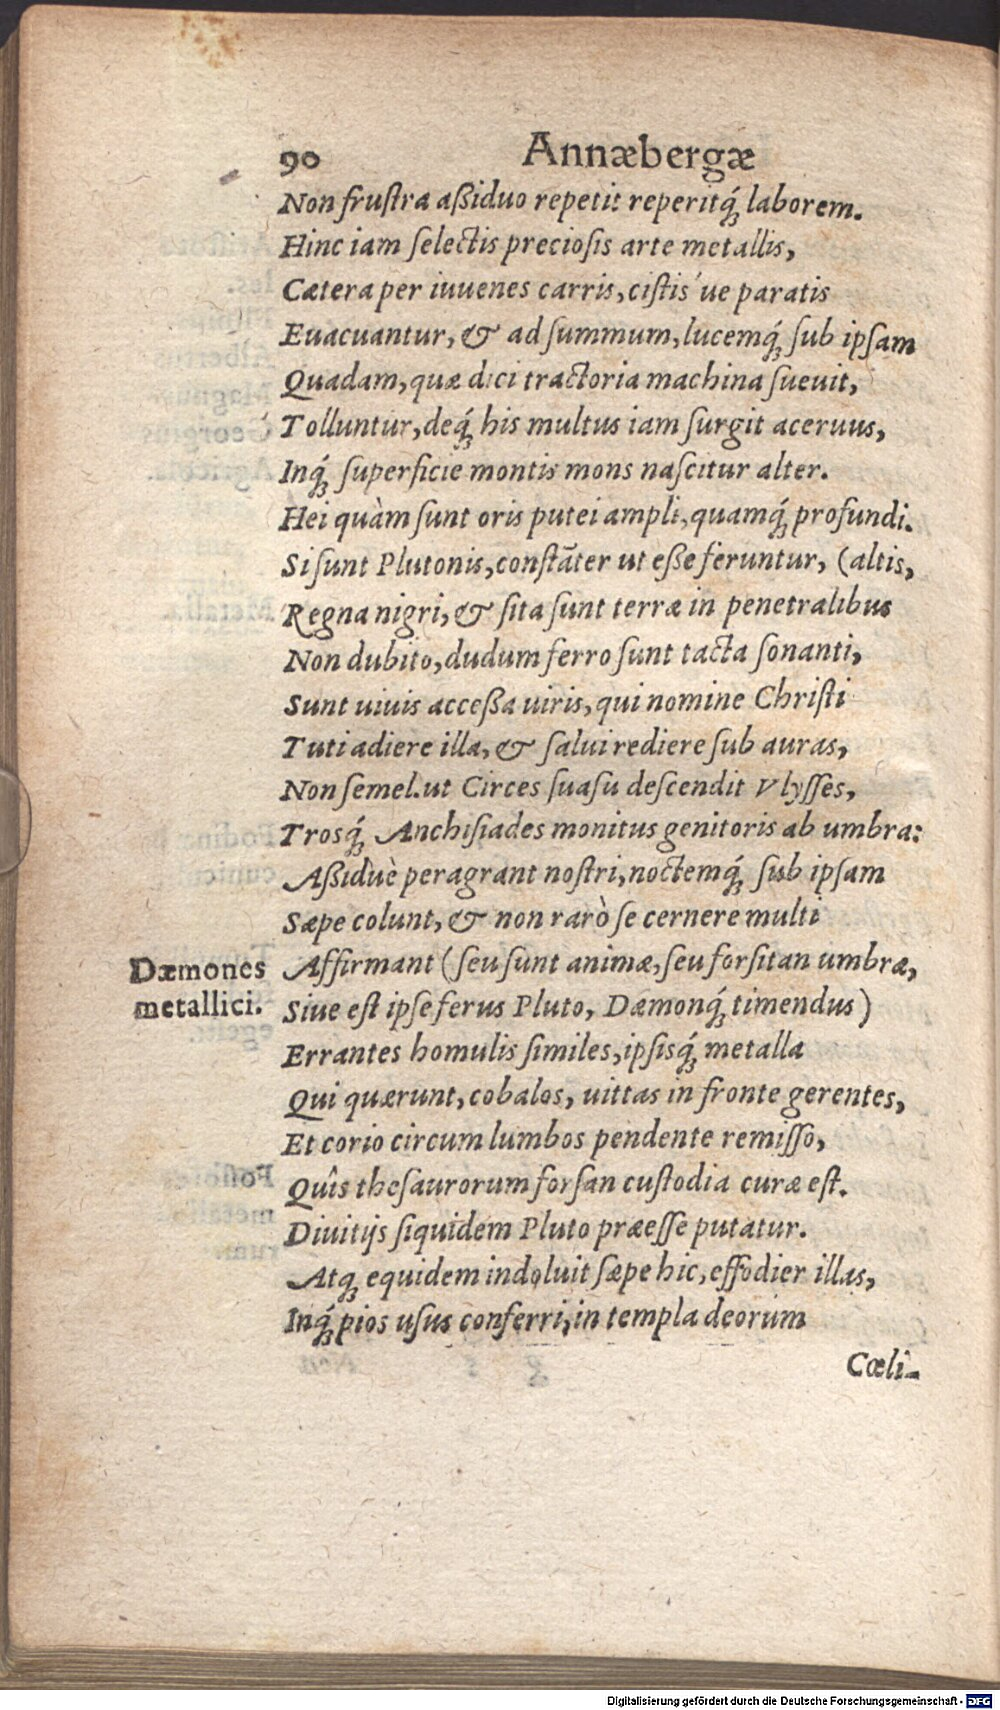 90 Annæbergæ
Non frustra aßiduo repetit reperitq́; laborem.
Hinc iam selectis preciosis arte metallis,
Cætera per iuuenes carris, cistis ue paratis
Euacuantur, & ad summum, lucemq́; sub ipsam
Quadam, quæ dici tractoria machina sueuit,
Tolluntur, deq́; his multus iam surgit aceruus,
Inq́; superficie montis mons nascitur alter.
Hei quàm sunt oris putei ampli, quamq́; profundi.
Si sunt Plutonis, constāter ut eße feruntur, (altis,
Regna nigri, & sita sunt terræ in penetralibus
Non dubito, dudum ferro sunt tacta sonanti,
Sunt uiuis acceßa uiris, qui nomine Christi
Tuti adiere illa, & salui rediere sub auras,
Non semel. ut Circes suasu descendit Vlysses,
Trosq́; Anchisiades monitus genitoris ab umbra:
Aßiduè peragrant nostri, noctemq́; sub ipsam
Sæpe colunt, & non rarò se cernere multi
Dæmones metallici.
Affirmant (seu sunt animæ, seu forsitan umbræ,
Siue est ipse ferus Pluto, Dæmonq́; timendus)
Errantes homulis similes, ipsisq́; metalla
Qui quærunt, cobalos, uittas in fronte gerentes,
Et corio circum lumbos pendente remisso,
Quîs thesaurorum forsan custodia curæ est.
Diuitijs siquidem Pluto præesse putatur.
Atq; equidem indoluit sæpe hic, effodier illas,
Inq́; pios usus conferri, in templa deorum
Cœli-
Digitalisierung gefördert durch die Deutsche Forschungsgemeinschaft - DFG